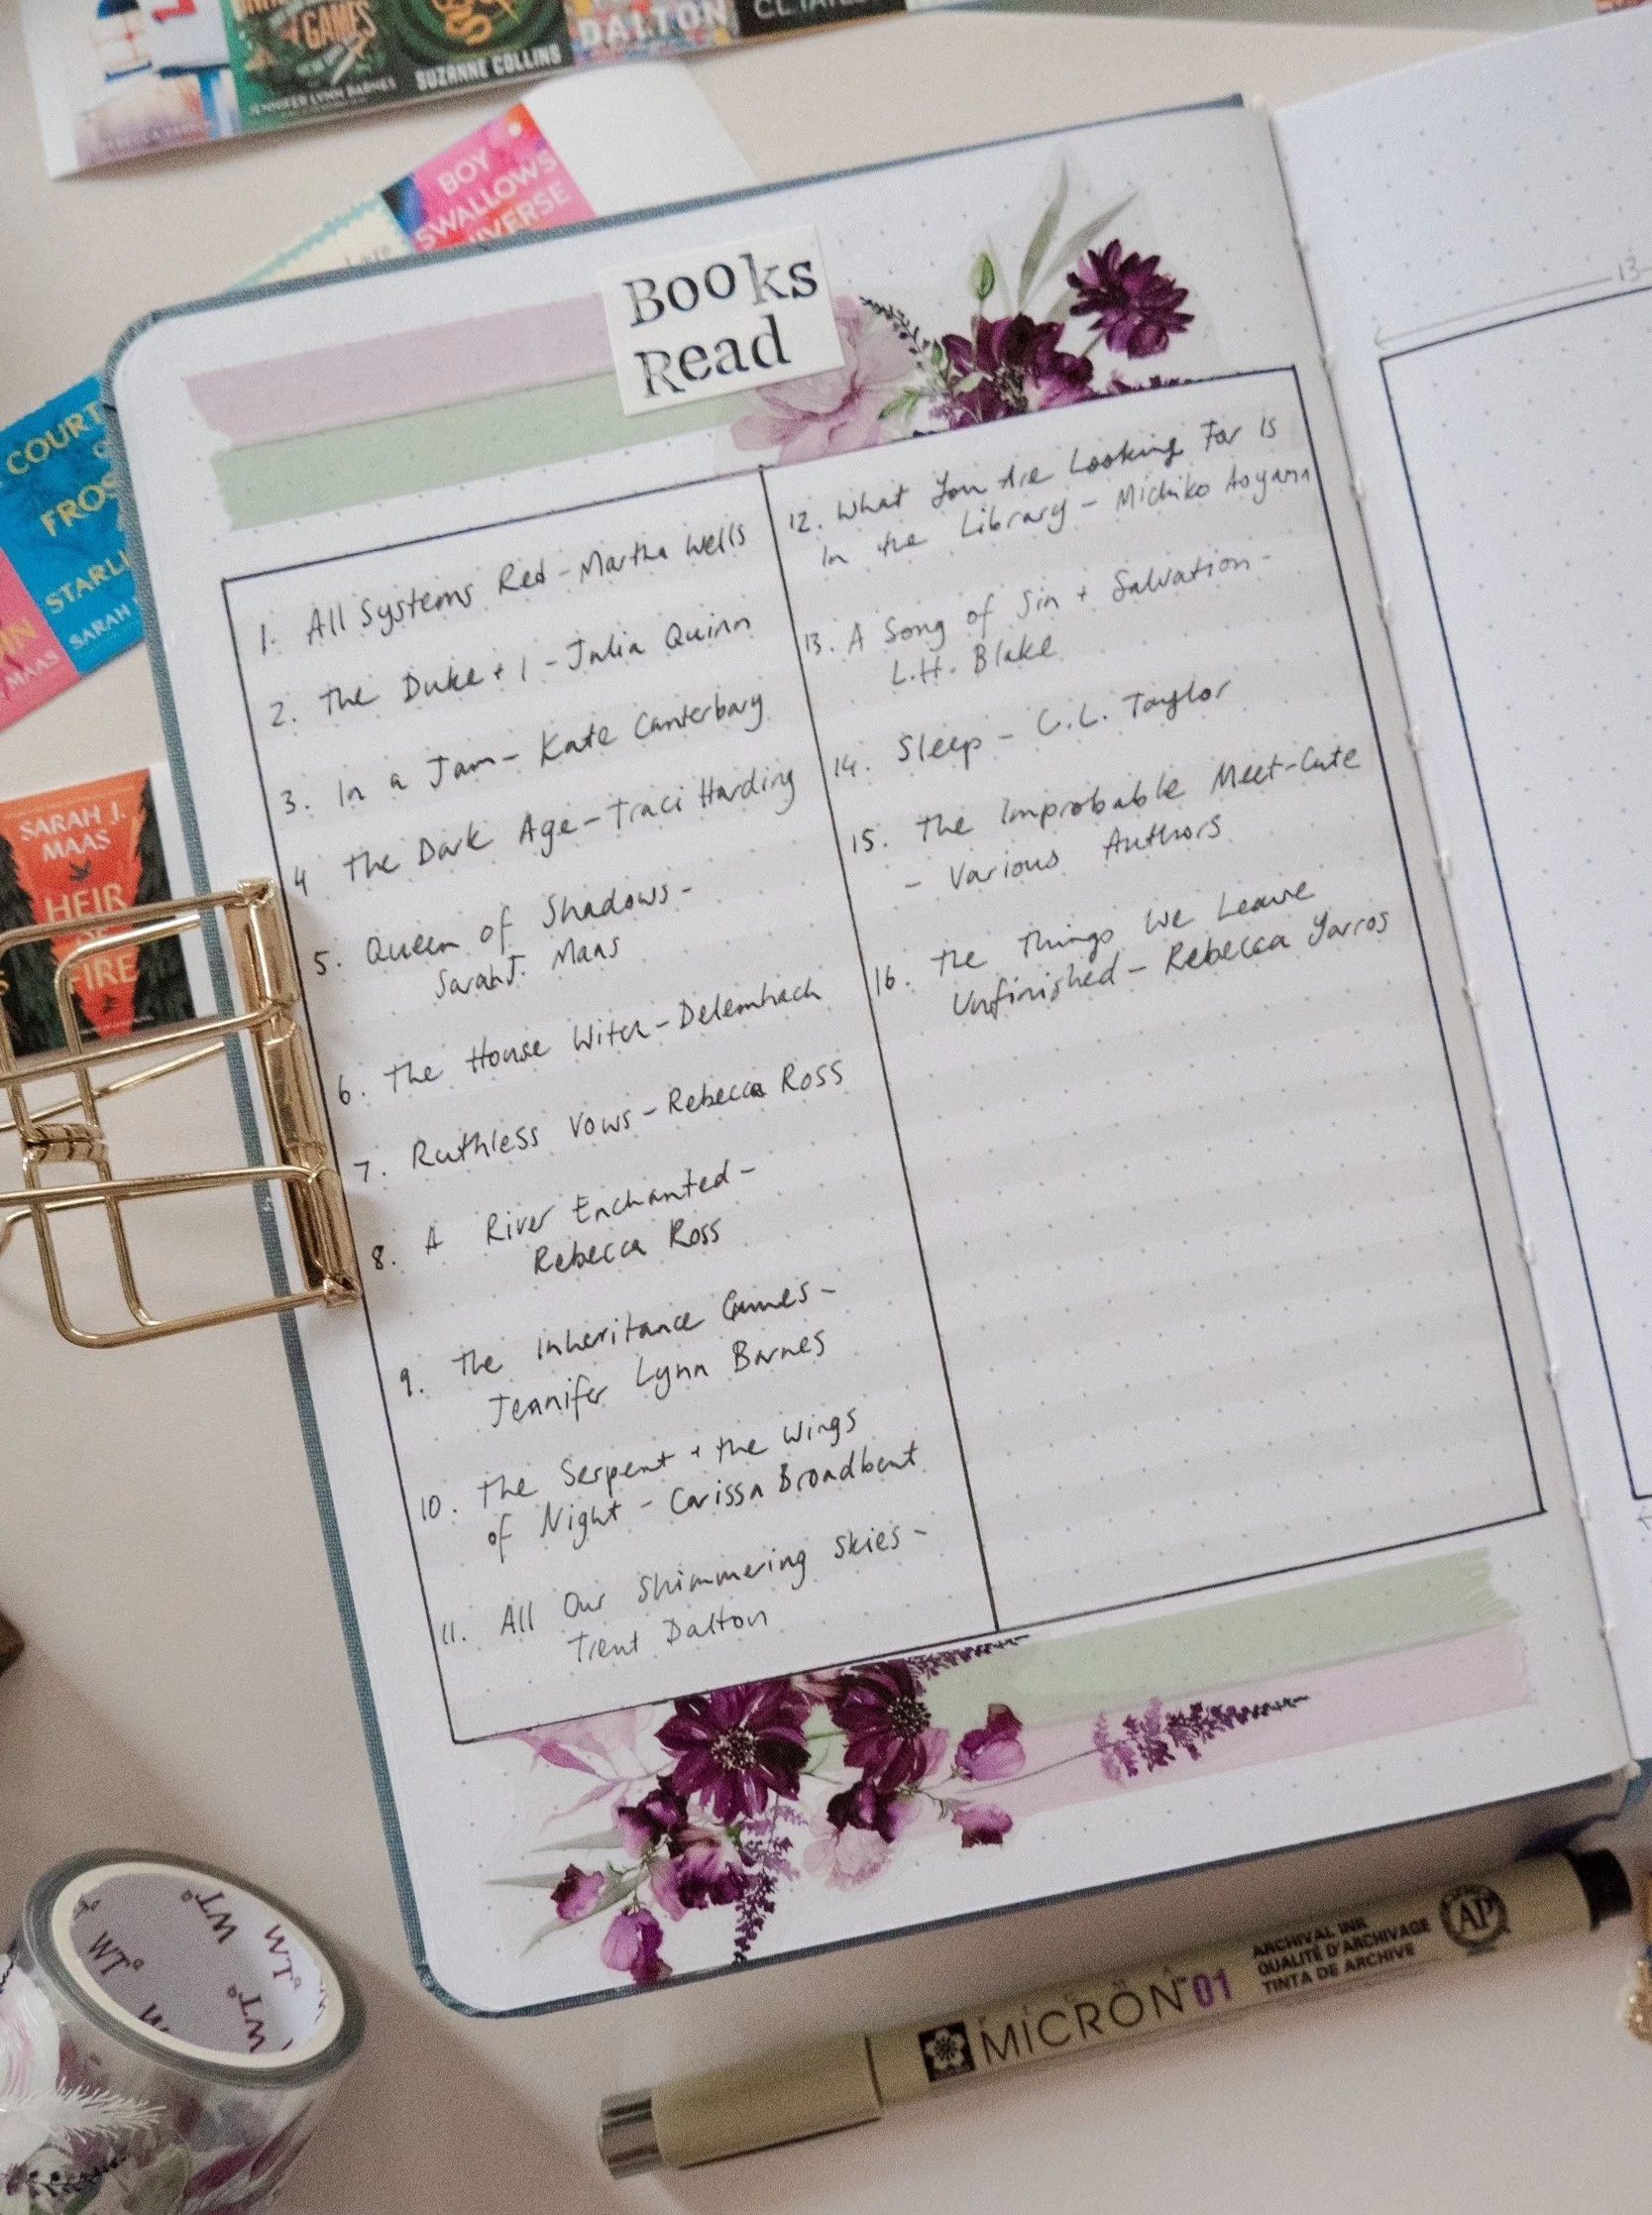 GAMES
JENNIFER LYNN BARNES
SUZANNE COLLINS
DALTON
BOY
SWALLOWS
COURT
FROS
STARLI
SARAH
MAAS
SARAH J.
MAAS
HEIR
FIRE
Books
Read
1. All Systems Red - Martha Wells
2. The Duke + I - Julia Quinn
3. In a Jam - Kate Canterbary
4 The Dark Age - Traci Harding
5. Queen of Shadows -
Sarah J. Maas
6. The House Witch - Delemhach
7. Ruthless Vows - Rebecca Ross
8. A River Enchanted -
Rebecca Ross
9. The Inheritance Games -
Jennifer Lynn Barnes
10. The Serpent + the Wings
of Night - Carissa Broadbent
11. All Our Shimmering Skies -
Trent Dalton
12. What You Are Looking For Is
In the Library - Michiko Aoyama
13. A Song of Sin + Salvation -
L.H. Blake
14. Sleep - C.L. Taylor
15. The Improbable Meet-Cute
- Various Authors
16. The Things We Leave
Unfinished - Rebecca Yarros
13
WT
WT
WT
WT
MICRON 01
ARCHIVAL INK
QUALITÉ D'ARCHIVAGE
TINTA DE ARCHIVE
AP